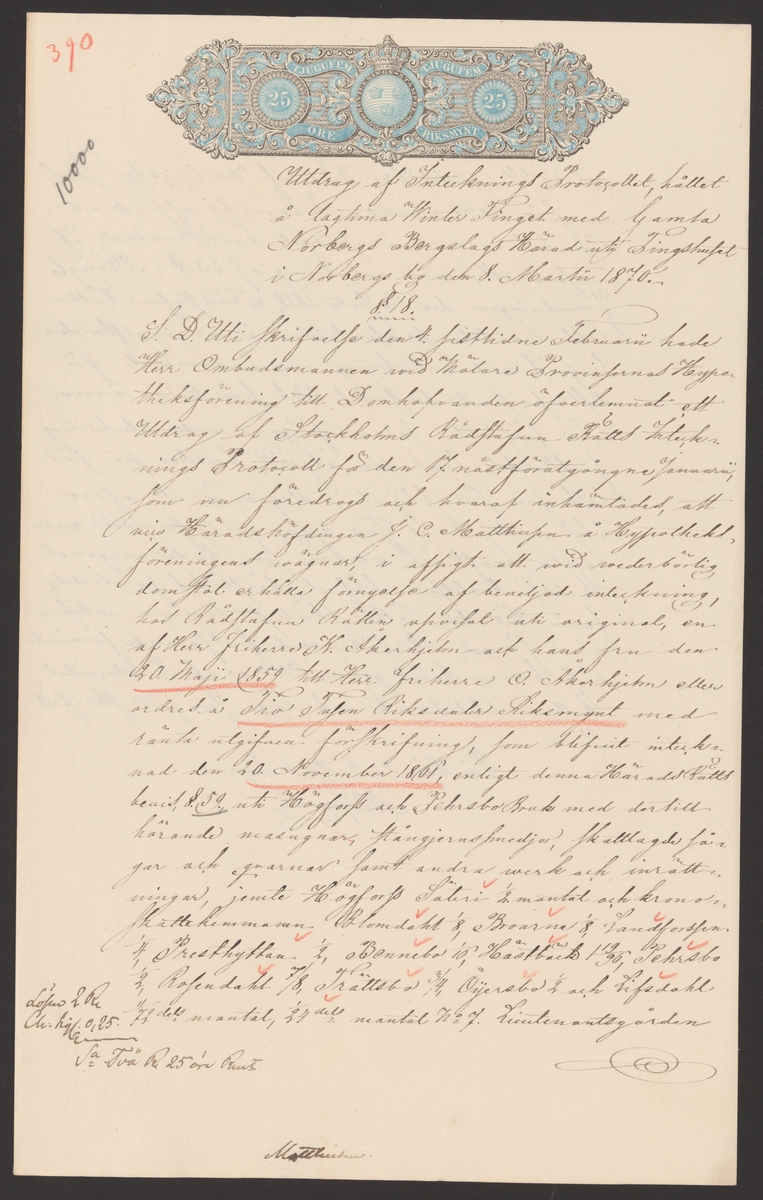 390
10000
TJUGUFEM TJUGUFEM
25 25
ÖRE RIKSMYNT
Utdrag af Intecknings Protocollet, hållet
å lagtima Winter Tinget med Gamla
Norbergs Bergslags Härad uti Tingshuset
i Norbergs by den 8. Martii 1870.
§ 18.
S. D. Uti skrifvelse den 4. sistlidne Februarii hade
Herr Ombudsmannen wid Mälare Provinsernas Hypo-
theksförening till Domhafvanden öfverlemnat ett
Utdrag af Stockholms Rådstufvu Rätts Inteck-
nings Protocoll för den 17 nästförutgångne Januarii,
som nu föredrogs och hvaraf inhämtades, att
vice Häradshöfdingen J. C. Matthiesen å Hypotheks-
föreningens wägnar, i afsigt att wid wederbörlig
domstol erhålla förnyelse af beviljad inteckning,
hos Rådstufvu Rätten upvisat uti original, en
af Herr Friherre K. Åkerhjelm och hans fru den
20. Maji 1859 till Herr Friherre O. Åkerhjelm eller
ordres å Tio Tusen Riksdaler Riksmynt med
ränta utgifven förskrifning, som blifvit inteck-
nad den 20. November 1861, enligt denna Härads Rätts
bevis, §. 59. uti Högfors och Pehrsbo Bruk med dertill
hörande masugnar, stångjernssmedjor, skattlagde så-
gar och qvarnar samt andra werk och inrätt-
ningar, jemte Högfors Säteri 1/2 mantal och krono-
skattehemmanen Blomdahl 1/8, Broarne 1/8, Landforssen
1/4, Presthyttan 1/2, Bennebo Hästbäck Pehrsbo
1/2, Rosendahl 7/8, Trättsbo Öijersbo 1/2 och Lifsdahl
dels mantal, 1/24 dels mantal No 7. Lieutenantsgården
Lösen 2 Rd
Ch. Sig. 0,25.
Sa Två Rd 25 öre Rmt.
Matthiesen.